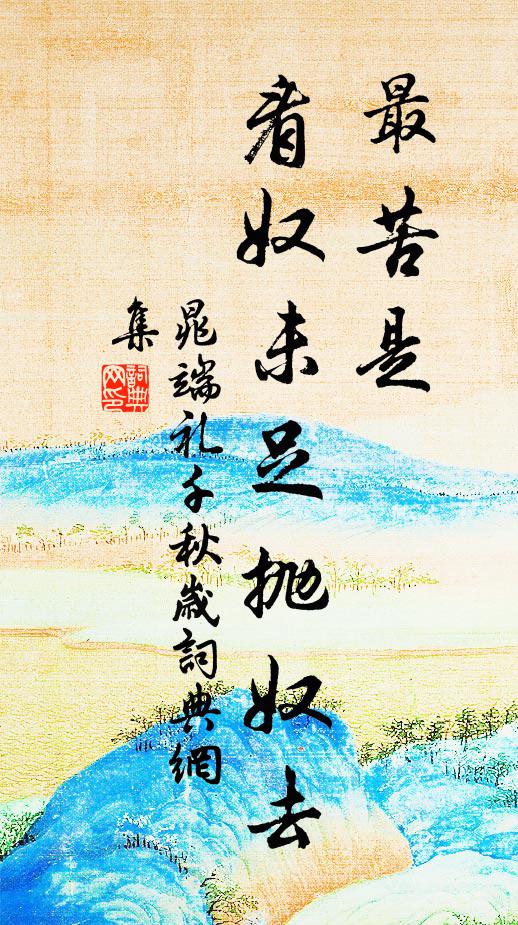 最苦是
看奴未足抛奴去
晁端礼千秋歲詞典網
集
詞典
网印